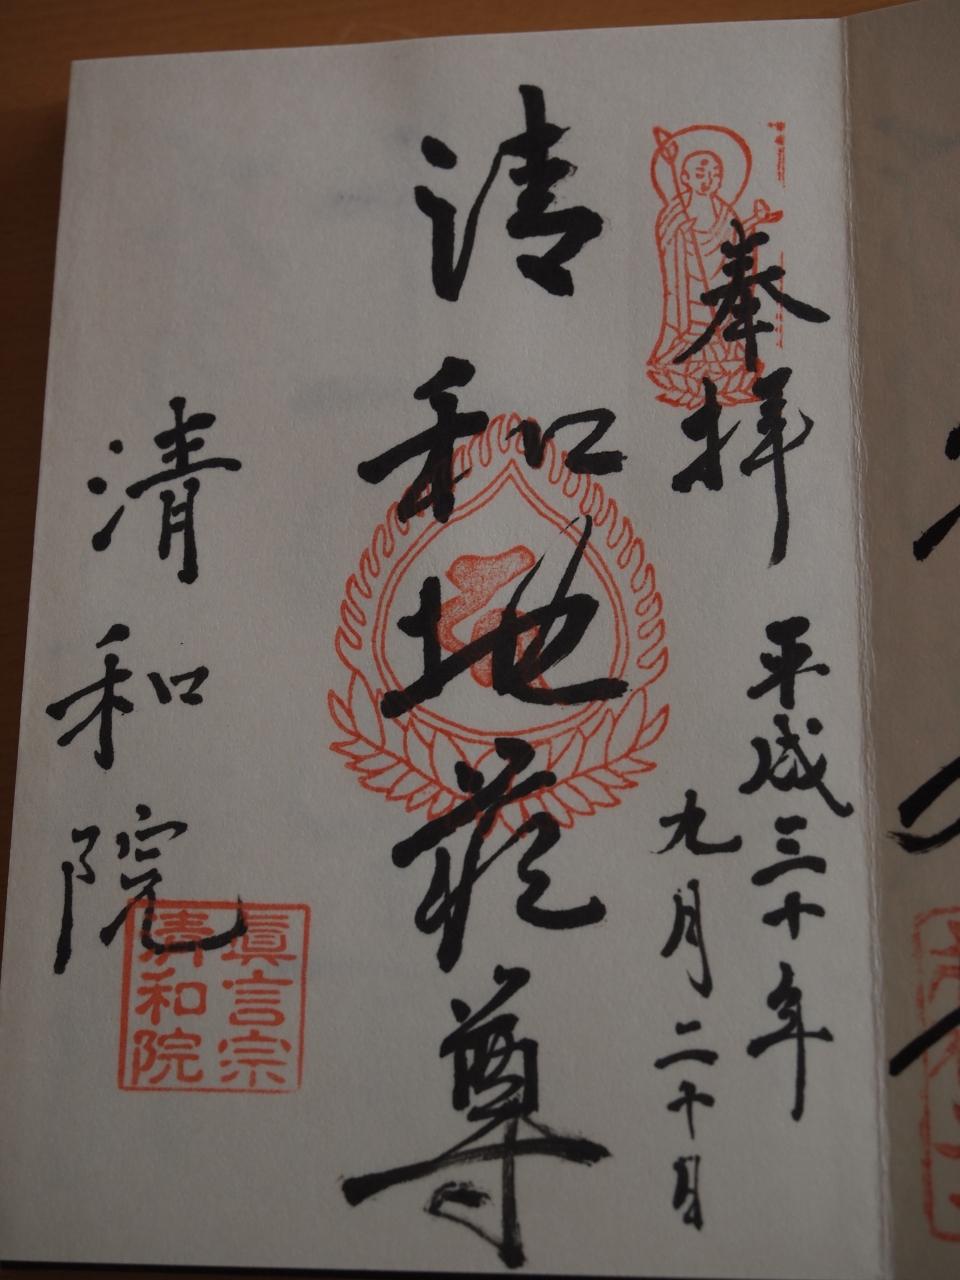 奉拝
平成三十年
九月二十日
清和地蔵尊
清和院
眞言宗
清和院